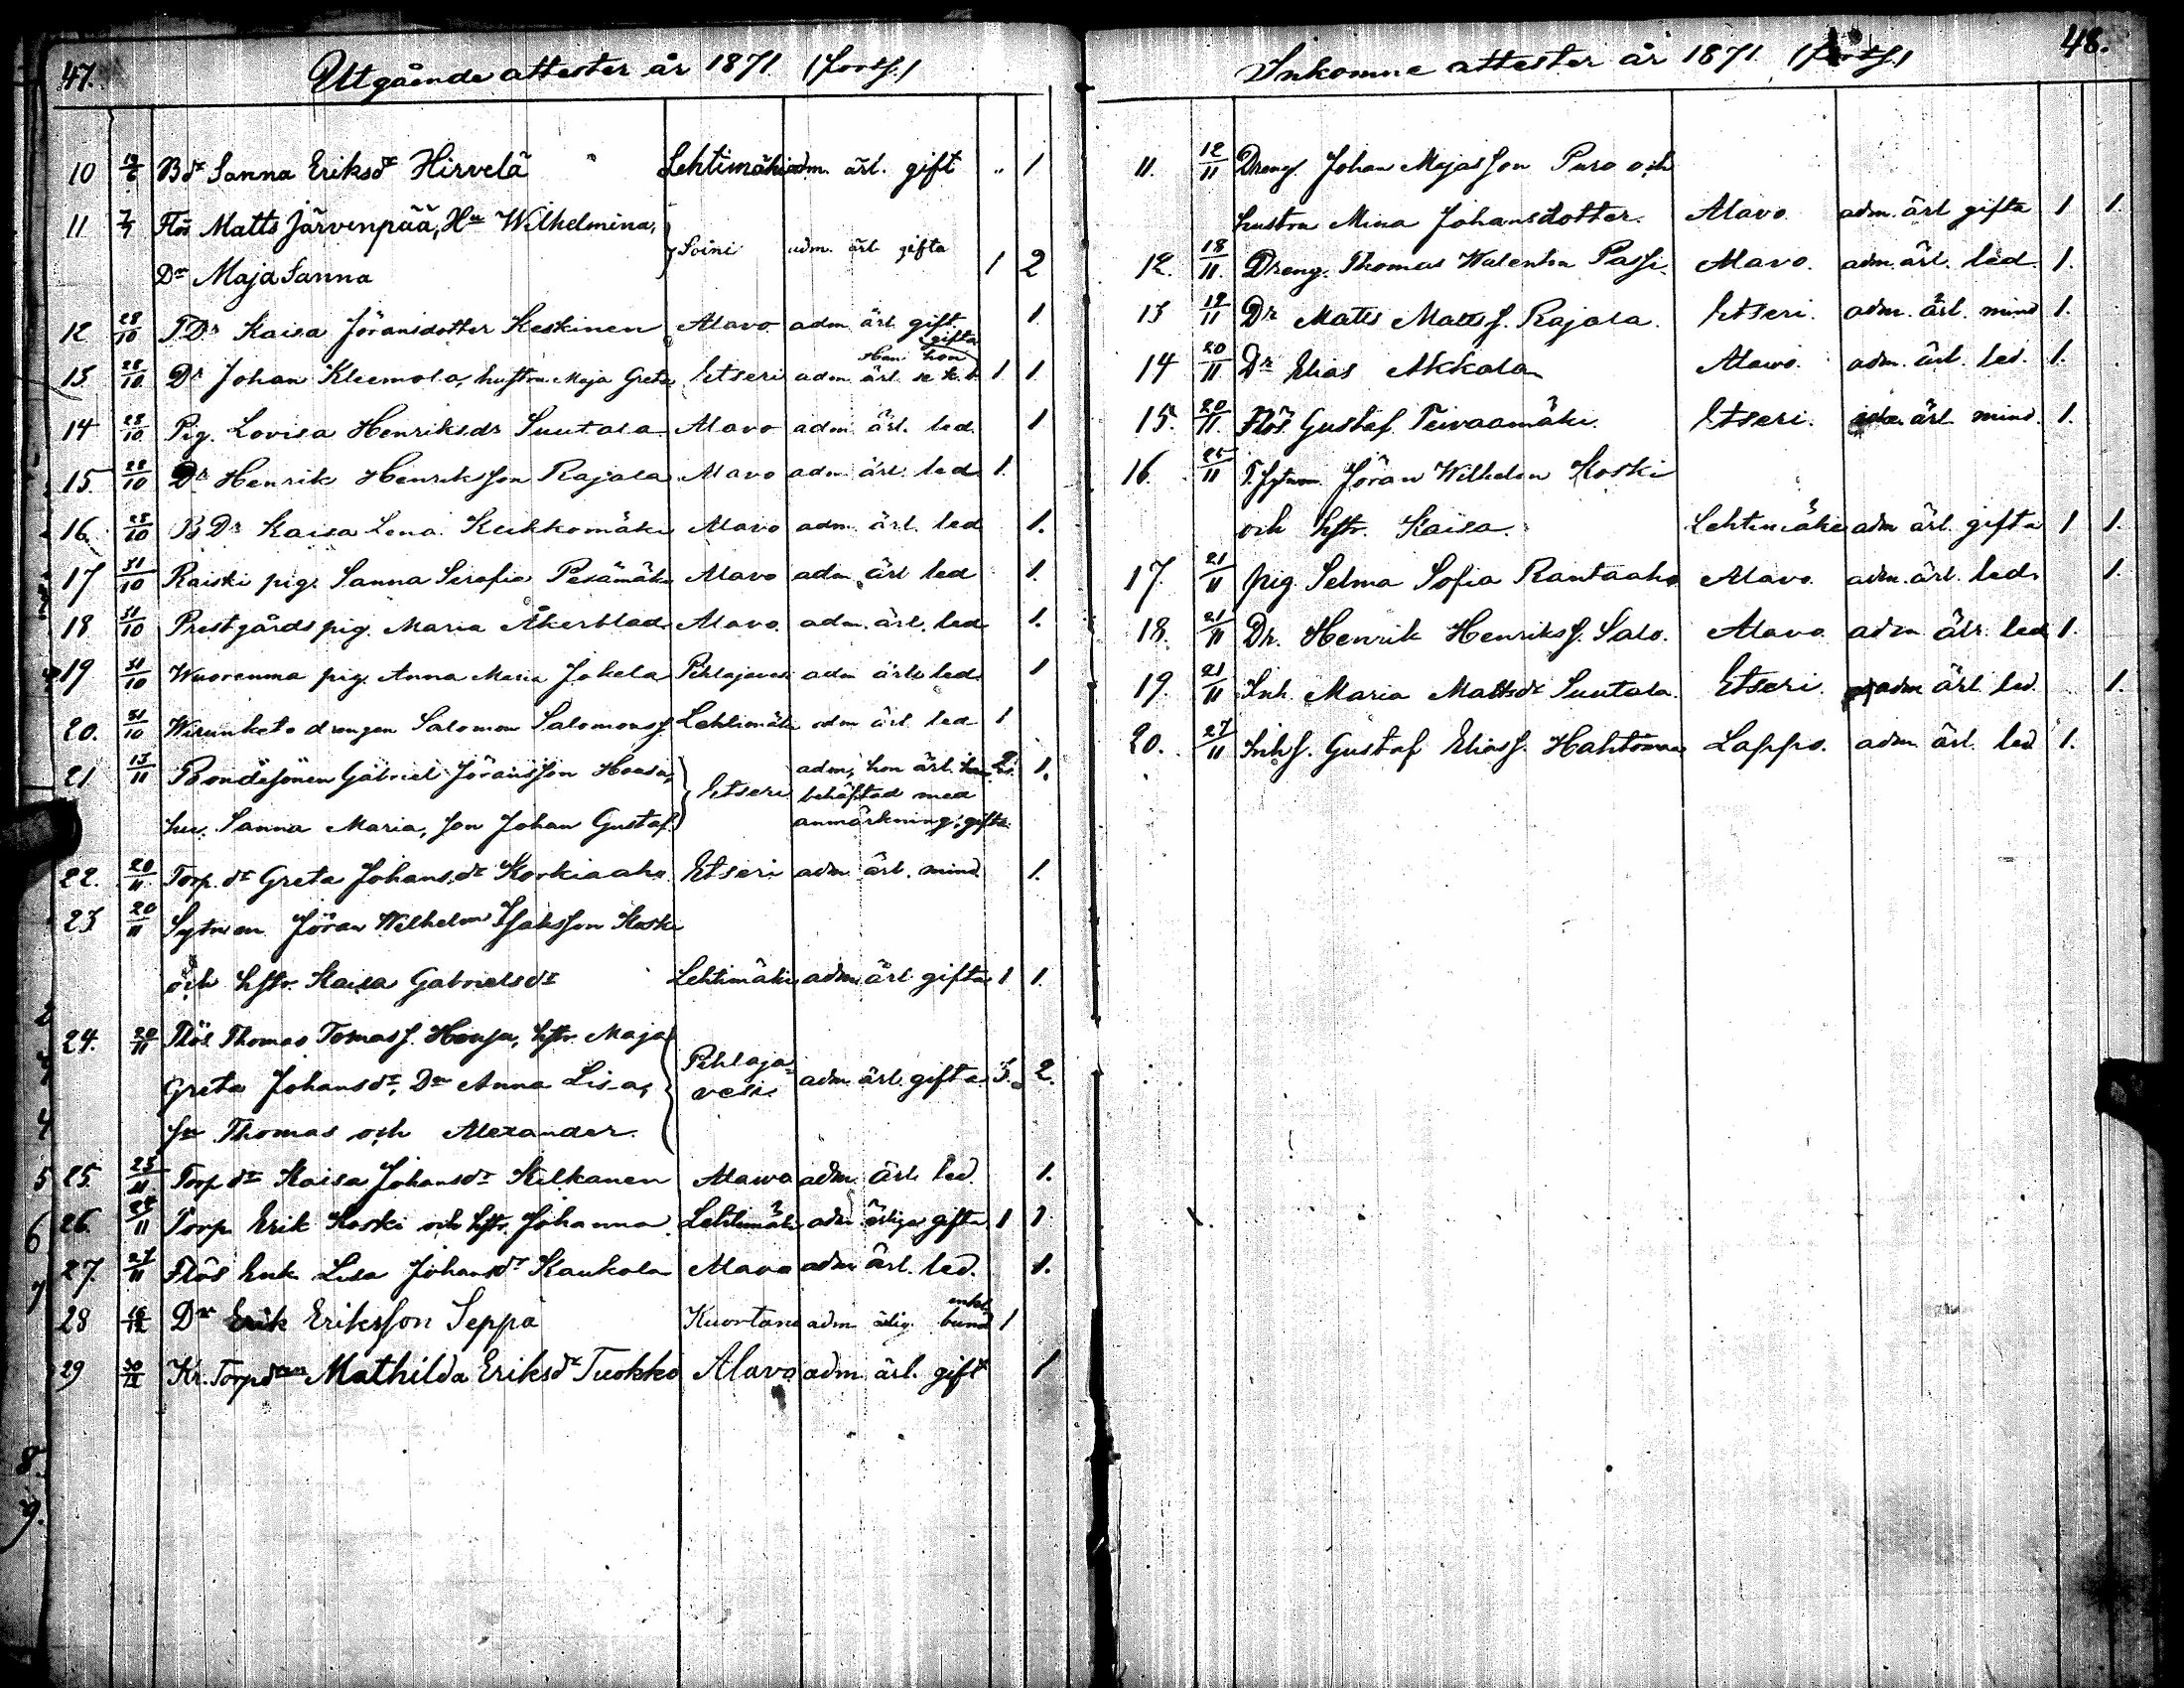 47. Utgående attester år 1871. (forts.)
10 19/6 Bdr Sanna Eriksdr Hirvelä " Lehtimäki adm. ärl. gift " 1
11 7/7 Flös Matts Järvenpää, Hu Wilhelmina,
Soini adm. ärl. gifta
Dr Maja Sanna 1 2
12 28/10 T.Dr Kaisa Jöransdotter Keskinen Alavo adm ärl gift 1.
gifta
Han hon
13 28/10 Dr Johan Kleemola, hustru Maja Greta Etseri adm. ärl. se k. b. 1 1
14 28/10 Pig. Lovisa Henriksdr Suutala Alavo adm ärl. led. 1
15 28/10 Dr Henrik Henriksson Rajala Alavo adm ärl. led 1.
16. 28/10 B Dr Kaisa Lena Keikkomäki Alavo adm. ärl. led 1.
17 31/10 Raiski pig. Sanna Serafia Peramäki Alavo adm. ärl led 1.
18 31/10 Prestgårds pig. Maria Åkerblad Alavo. adm. ärl. led 1.
19 31/10 Wuorenma pig. Anna Maria Jokela Pihlajavesi adm ärl. led. 1
20. 31/10 Wirunketo drengen Salomon Salomonss. Lehtimäki adm ärl. led 1
21 13/11 Bondesonen Gabriel Jöransson Housa, adm; hon ärl. han 2. 1.
Etseri behäftad med
hu. Sanna Maria, son Johan Gustaf. anmärkning; gifta
22. 20/11 Torp. dr Greta Johans.dr Korkiaaho Etseri adm. ärl. mind 1.
23 20/11 Sytman Jöran Wilhelm Isaksson Koski
och hstr. Kaisa Gabrielsdr Lehtimäki adm ärl gifta 1 1.
24. 20/11 Flös Thomas Tomass. Housa, hstr. Maja
Pihlaja-
Greta Johansdr, Dr Anna Lisa, vesi adm ärl. gifta 3. 2.
Sr Thomas och Alexander.
25. 23/11 Torp dr Kaisa Johansdr Kilkanen Alawo adm. ärl. led. 1.
26. 24/11 Torp Erik Koski och hstr. Johanna. Lehtimäki adm ärliga gifta 1 1
27. 27/11 Flös Enk. Lisa Johansdr Kaukola Alavo adm ärl. led. 1.
enkel
28 16/12 Dr Erik Eriksson Seppä Kuortane adm ärlig bund 1
29 30/12 Kr. Torpdr Mathilda Eriksdr Tuokko Alavo adm. ärl. gift 1
Inkomne attester år 1871. (forts.) 48.
11. 12/11 Dreng. Johan Majasson Puro och
hustru Mina Johansdotter. Alavo. adm. ärl gifta 1 1.
12. 18/11 Dreng. Thomas Walentin Passi. Alavo. adm. ärl. led. 1.
13 19/11 Dr Matts Mattss. Rajala. Etseri. adm. ärl. mind 1.
14 20/11 Dr Elias Akkala Alawo. adm. ärl. led. 1.
15. 20/11 Flös Gustaf Teivaamäki. Etseri. ärl. mind. 1.
16. 25/11 T. Sytman Jöran Wilhelm Koski
och hstr. Kaisa. Lehtimäki adm ärl. gifta 1 1.
17. 21/11 pig Selma Sofia Rantaaho Alavo. adm. ärl. led. 1.
18. 21/11 Dr. Henrik Henrikss. Salo. Alavo. adm ärl. led 1.
19. 21/11 Inh. Maria Mattsdr Suutala. Etseri. adm ärl. led. 1.
20. 27/11 Inhs. Gustaf Eliass. Lappo. adm. ärl. led 1.
2
4
5
6
7
8.
9.